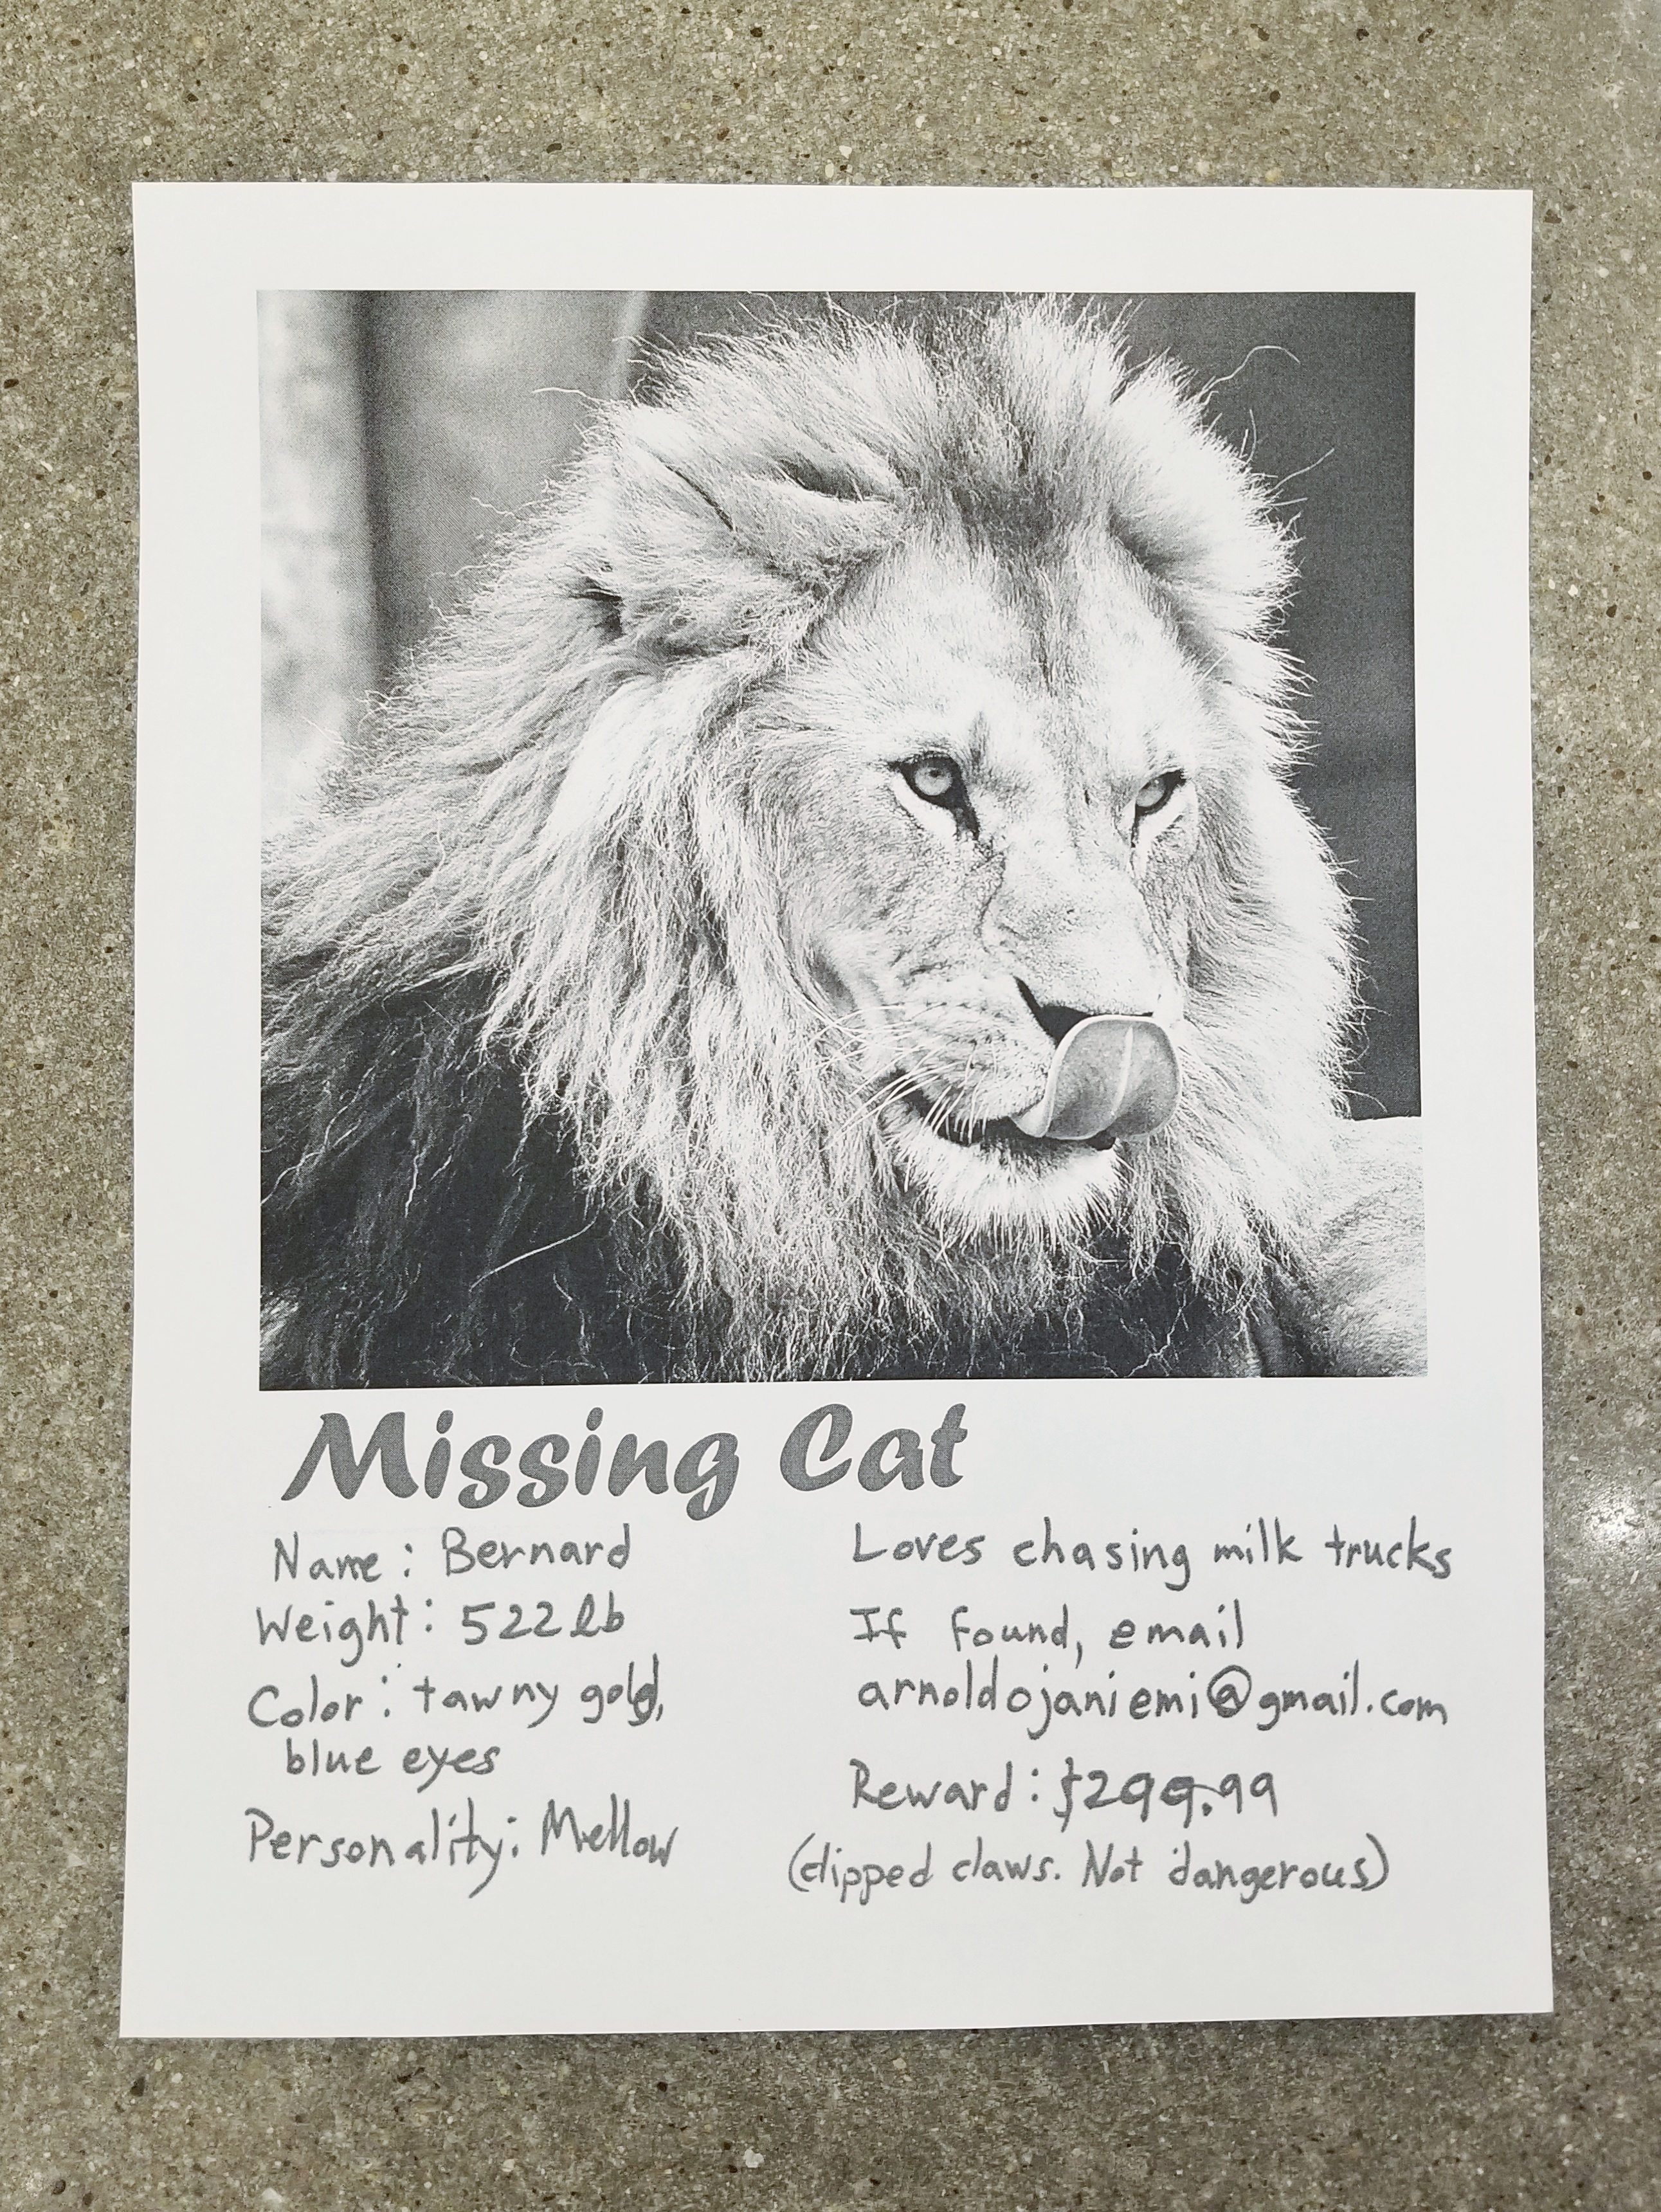 Missing Cat
Name: Bernard
Weight: 522 lb
Color: tawny gold,
blue eyes
Personality: Mellow
Loves chasing milk trucks
If found, email
arnoldojaniemi@gmail.com
Reward: $299.99
(clipped claws. Not dangerous)